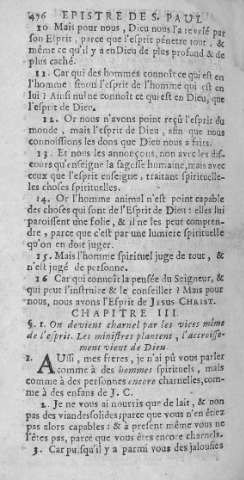 476 EPISTRE DE S. PAUL
10 Mais pour nous, Dieu nous l'a revelé par
son Esprit, parce que l'esprit pénetre tout, &
même ce qu'il y a en Dieu de plus profond & de
plus caché.
11. Car qui des hommes connoît ce qui est en
l'homme sinon l'esprit de l'homme qui est en
lui? Ainsi nul ne connoît ce qui est en Dieu, que
l'esprit de Dieu.
12. Or nous n'avons point reçû l'esprit du
monde, mais l'Esprit de Dieu, afin que nous
connoissions les dons que Dieu nous a faits.
13. Et nous les annonçons, non avec les dis-
cours qu'enseigne la sagesse humaine, mais avec
ceux que l'esprit enseigne, traitant spirituelle-
les choses spirituelles.
14. Or l'homme animal n'est point capable
des choses qui sont de l'Esprit de Dieu: elles lui
paroissent une folie, & il ne les peut compren-
dre, parce que c'est par une lumiere spirituelle
qu'on en doit juger.
15. Mais l'homme spirituel juge de tout, &
n'est jugé de personne.
16 Car qui connoît la pensée du Seigneur, &
qui peut l'instruire & le conseiller? Mais pour
nous, nous avons l'Esprit de JESUS CHRIST.
CHAPITRE III.
§. 1. On devient charnel par les vices même
de l'esprit. Les ministres plantent, l'accroisse-
ment vient de Dieu.
1. AUssi, mes freres, je n'ai pû vous parler
comme à des hommes spirituels, mais
comme à des personnes encore charnelles, comme
à des enfans de J. C.
2. Je ne vous ai nourris que de lait, & non
pas des viandes solides, parce que vous n'en étiez
pas alors capables: & à présent même vous ne
l'êtes pas, parce que vous êtes encore charnels.
3. Car puisqu'il y a parmi vous des jalousies